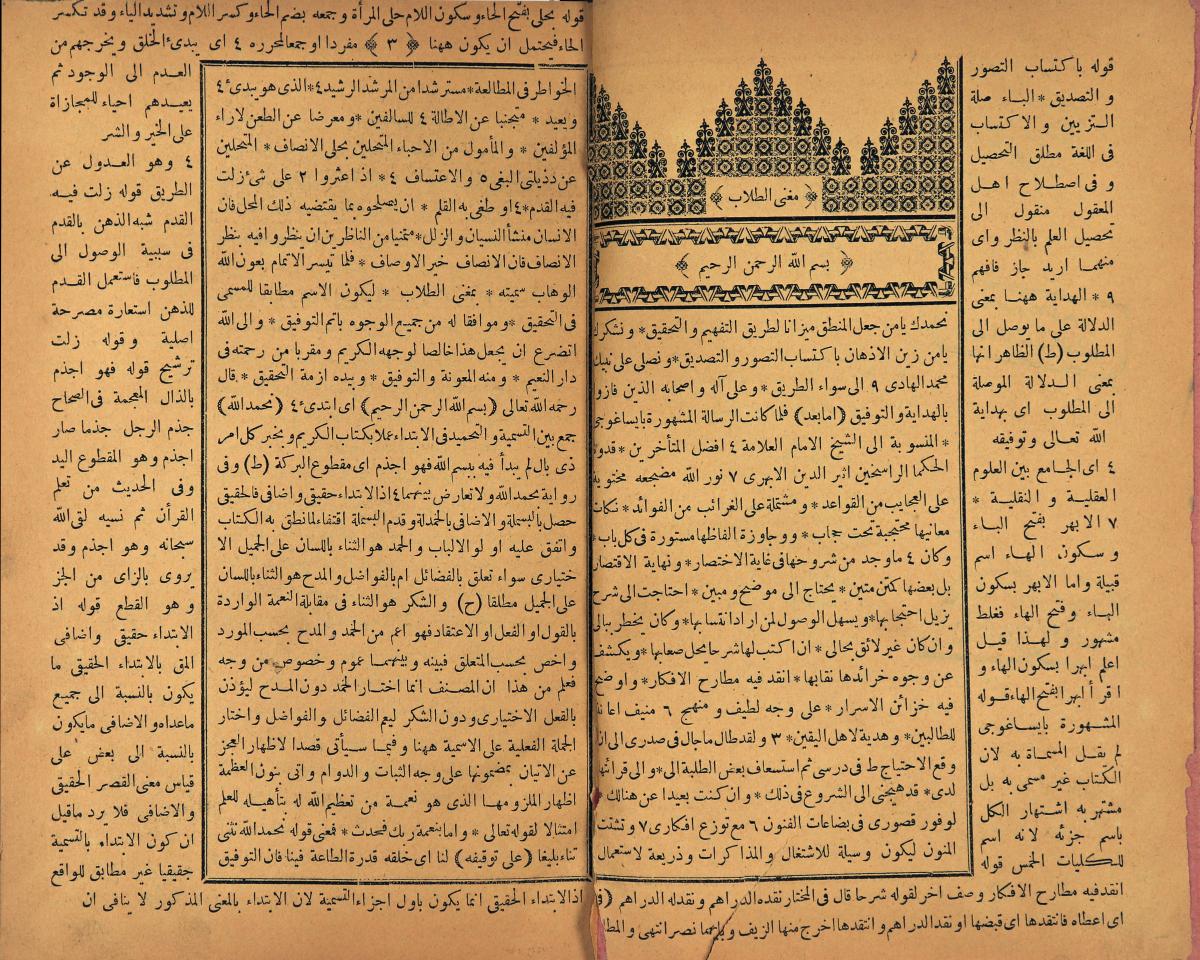 ﴿ مغنى الطلاب ﴾
﴿ بسم الله الرحمن الرحيم ﴾
نحمدك يا من جعل المنطق ميزانا لطريق التفهيم والتحقيق * ونشكرك
يا من زين الاذهان باكتساب التصور والتصديق * ونصلى على نبيك
محمد الهادى ٩ الى سواء الطريق * وعلى آله واصحابه الذين فازو
بالهداية والتوفيق (امابعد) فلما كانت الرسالة المشهورة بايساغوجى
* المنسوبة الى الشيخ الامام العلامة ٤ افضل المتأخرين * قدوة
الحكما الراسخين اثير الدين الابهرى ٧ نور الله مضجعه محتوية
على العجايب من القواعد * ومشتملة على الغرائب من الفوائد * نكات
معانيها محتجبة تحت حجاب * ووجاوزة الفاظها مستورة فى كل باب *
وكان ٤ ماوجد من شروحها فى غاية الاختصار * ونهاية الاقتصار
بل بعضها كمتن متين * يحتاج الى موضح ومبين * احتاجت الى شرح
يزيل احتجابها * ويسهل الوصول لمن اراد انتسابها * وكان يخطر ببالى
وان كان غير لائق بحالى * ان اكتب لها شرحا يحل صعابها * ويكشف
عن وجوه خرائدها نقابها * انقد فيه مطارح الافكار * واوضح
فيه خزائن الاسرار * على وجه لطيف ومنهج ٦ منيف اعانة
للطالبين * وهدية لاهل اليقين * ٣ ولقد طال ماجال فى صدرى الى ان
وقع الاحتياج ط فى درسى ثم استسعاف بعض الطلبة الى * والى قرائتها
لدى * قد هيجنى الى الشروع فى ذلك * وان كنت بعيدا عن هنالك *
لوفور قصورى فى بضاعات الفنون ٦ مع توزع افكارى ٧ وتشتت
المنون ليكون وسيلة للاشتغال والمذاكرات وذريعة لاستعمال
قوله باكتساب التصور
والتصديق * الباء صلة
التزيين والاكتساب
فى اللغة مطلق التحصيل
وفى اصطلاح اهل
المعقول منقول الى
تحصيل العلم بالنظر واى
منهما اريد جاز فافهم
٩ * الهداية ههنا بمعنى
الدلالة على ما يوصل الى
المطلوب (ط) الظاهر انها
بمعنى الدلالة الموصلة
الى المطلوب اى بهداية
الله تعالى وتوفيقه
٤ اى الجامع بين العلوم
العقلية والنقلية *
٧ الابهر بفتح الباء
وسكون الهاء اسم
قبيلة واما الابهر بسكون
الباء وفتح الهاء فغلط
مشهور ولهذا قيل
اعلم ابهرا بسكون الهاء و
اقرأ ابهرا بفتح الهاء قوله
المشهورة بايساغوجى
لم نقل المسماة به لان
الكتاب غير مسمى به بل
مشتهر به اشتهار الكل
باسم جزئه لانه اسم
للكليات الخمس قوله
انقد فيه مطارح الافكار وصف اخر لقوله شرحا قال فى المختار نقده الدراهم ونقد له الدراهم
اى اعطاه فانتقدها اى قبضها او نقد الدراهم وانتقدها اخرج منها الزيف وبابهما نصر انتهى
قوله بحلى بفتح الحاء وسكون اللام حلى المرأة وجمعه بضم الحاء وكسر اللام وتشديد الياء وقد تكسر
الحاء فيحتمل ان يكون ههنا ﴿ ٣ ﴾ مفردا او جمعا لمحرره ٤ اى يبدئ الخلق ويخرجهم من
العدم الى الوجود ثم
يعيدهم احياء للمجازاة
على الخير والشر
٤ وهو العدول عن
الطريق قوله زلت فيه
القدم شبه الذهن بالقدم
فى سببية الوصول الى
المطلوب فاستعمل القدم
للذهن استعارة مصرحة
اصلية وقوله زلت
ترشيح قوله فهو اجذم
بالذال المعجمة فى الصحاح
جذم الرجل جذما صار
اجذم وهو المقطوع اليد
وفى الحديث من تعلم
القرآن ثم نسيه لقى الله
سبحانه وهو اجذم وقد
يروى بالزاى من الجز
وهو القطع قوله اذ
الابتداء حقيقى واضافى
المق بالابتداء الحقيقى ما
يكون بالنسبة الى جميع
ماعداه والاضافى مايكون
بالنسبة الى بعض على
قياس معنى القصر الحقيقى
والاضافى فلا يرد ماقيل
ان كون الابتداء بالتسمية
حقيقيا غير مطابق للواقع
الخواطر فى المطالعة * مسترشدا من المرشد الرشيد ٤ * الذى هو يبدئ ٤
ويعيد * متجنبا عن الاطالة ٤ للسالفين * ومعرضا عن الطعن لاراء
المؤلفين * والمأمول من الاحباء المتحلين بحلى الانصاف * المتخلين
عن رذيلتى البغى ٥ والاعتساف ٤ * اذ اعثروا ٢ على شئ زلت
فيه القدم * ٤ او طغى به القلم * ان يصلحوه بما يقتضيه ذلك المحل فان
الانسان منشأ النسيان والزلل * متمنيا من الناظرين ان ينظروا فيه بنظر
الانصاف فان الانصاف خير الاوصاف * فلما تيسر الاتمام بعون الله
الوهاب سميته * بمغنى الطلاب * ليكون الاسم مطابقا للمسمى
فى التحقيق * وموافقا له من جميع الوجوه باتم التوفيق * والى الله
اتضرع ان يجعل هذا خالصا لوجهه الكريم ومقربا من رحمته فى
دار النعيم * ومنه المعونة والتوفيق * وبيده ازمة التحقيق * قال
رحمه الله تعالى (بسم الله الرحمن الرحيم) اى ابتدئ ٤ (نحمد الله)
جمع بين التسمية والتحميد فى الابتداء عملا بكتاب الكريم وبخبر كل امر
ذى بال لم يبدأ فيه ببسم الله فهو اجذم اى مقطوع البركة (ط) وفى
رواية بحمد الله ولا تعارض بينهما ٤ اذ الابتداء حقيقى واضافى فالحقيقى
حصل بالبسملة والاضافى بالحمدلة وقدم البسملة اقتفاء لما نطق به الكتاب
واتفق عليه او لو الالباب والحمد هو الثناء باللسان على الجميل الا
ختيارى سواء تعلق بالفضائل ام بالفواضل والمدح هو الثناء باللسان
على الجميل مطلقا (ح) والشكر هو الثناء فى مقابلة النعمة الواردة
بالقول او الفعل او الاعتقاد فهو اعم من الحمد والمدح بحسب المورد
واخص بحسب المتعلق فبينه وبينهما عموم وخصوص من وجه
فعلم من هذا ان المصنف انما اختار الحمد دون المدح ليؤذن
بالفعل الاختيارى ودون الشكر ليعم الفضائل والفواضل واختار
الجملة الفعلية على الاسمية ههنا وفيما سيأتى قصدا لاظهار العجز
عن الاتيان بمضمونها على وجه الثبات والدوام واتى بنون العظمة
اظهار الملزومها الذى هو نعمة من تعظيم الله له بتأهيله للعلم
امتثالا لقوله تعالى * واما بنعمة ربك فحدث * فمعنى قوله نحمد الله نثنى
ثناء بليغا (على توفيقه) لنا اى خلقه قدرة الطاعة فينا فان التوفيق
اذ الابتداء الحقيقى انما يكون باول اجزاء التسمية لان الابتداء بالمعنى المذكور لا ينافى ان